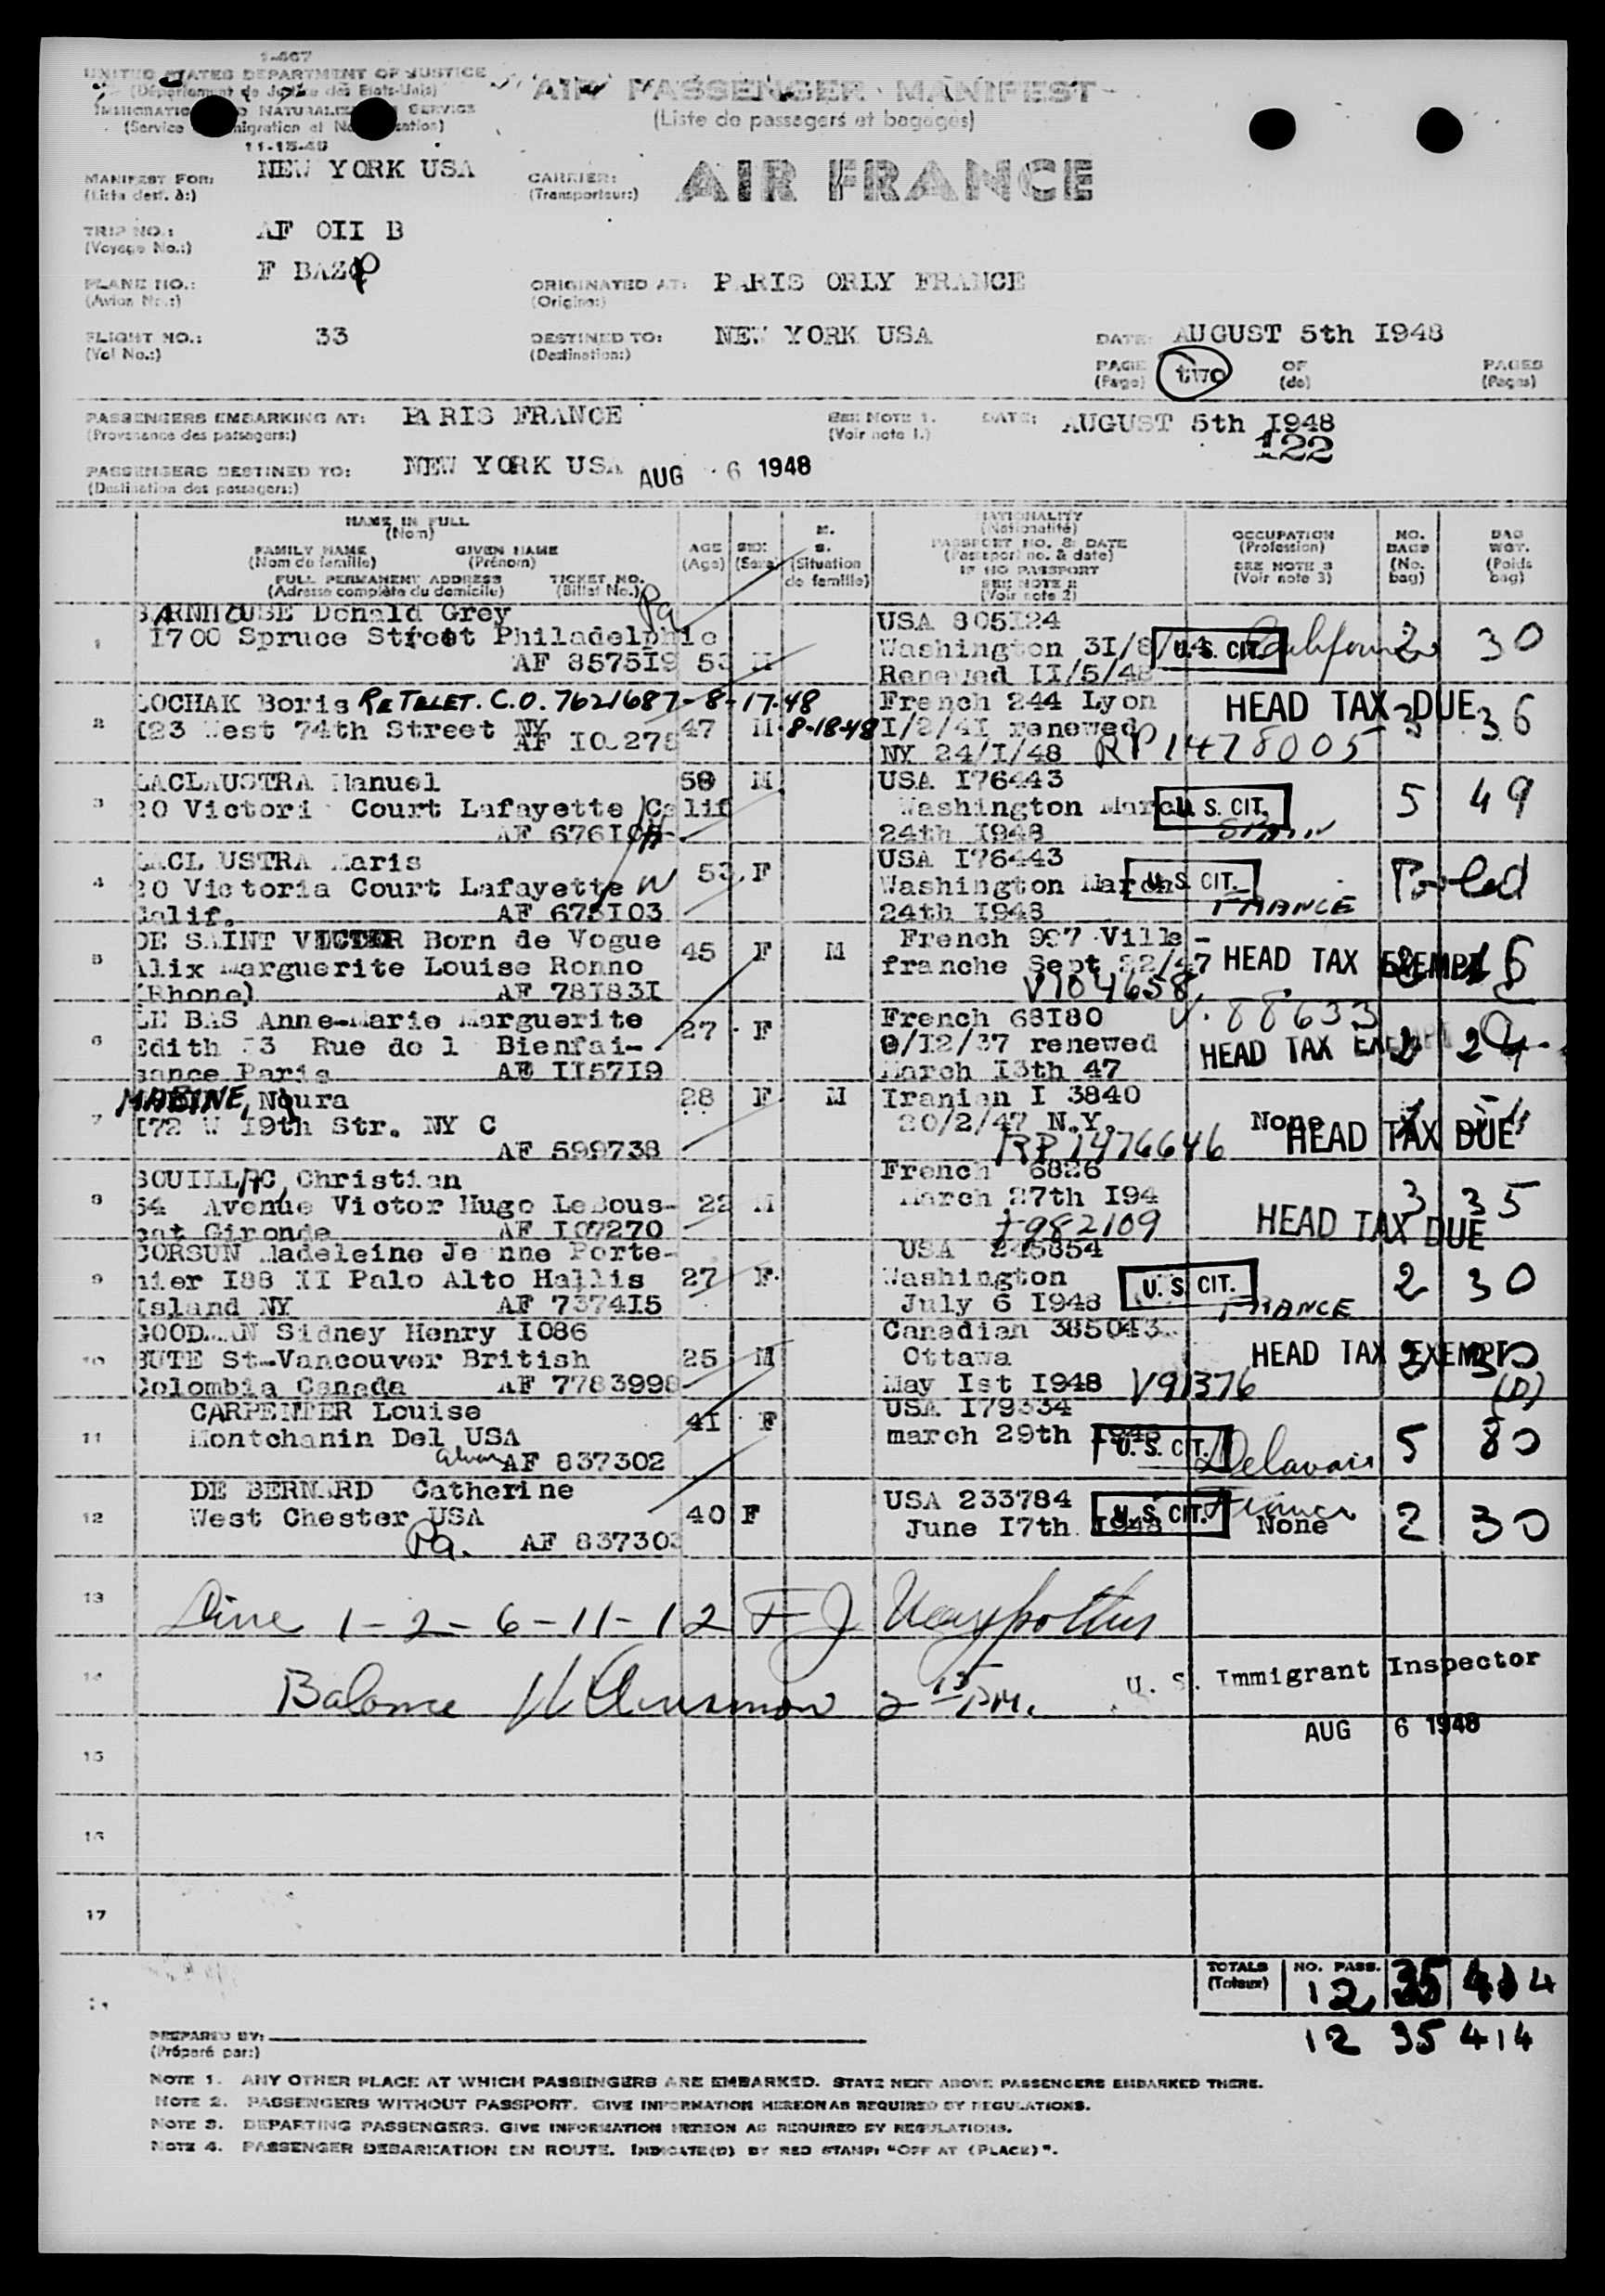 I-467
UNITED STATES DEPARTMENT OF JUSTICE
(Département de Justice des Etats-Unis)
IMMIGRATION NATURALIZ SERVICE
(Service migration et sation)
11-15-45
AIR PASSENGER MANIFEST
(Liste de passagers et bagages)
MANIFEST FOR: NEW YORK USA
(Liste dest. à:)
CARRIER: AIR FRANCE
(Transporteur:)
TRIP NO.: AF OII B
(Voyage No.:)
PLANE NO.: F BAZ
(Avion No.:)
ORIGINATED AT: PARIS ORLY FRANCE
(Origine:)
FLIGHT NO.: 33
(Vol No.:)
DESTINED TO: NEW YORK USA
(Destination:)
DATE: AUGUST 5th I948
PAGE two OF PAGES
(Page) (de) (Pages)
PASSENGERS EMBARKING AT: PARIS FRANCE
(Provenance des passagers:)
SEE NOTE 1. DATE: AUGUST 5th I948
(Voir note 1.)
122
PASSENGERS DESTINED TO: NEW YORK USA AUG 6 1948
(Destination des passagers:)
NAME IN FULL
(Nom)
FAMILY NAME GIVEN NAME
(Nom de famille) (Prénom)
FULL PERMANENT ADDRESS TICKET NO.
(Adresse complète du domicile) (Billet No.)
AGE
(Age)
SEX
(Sexe)
M.
S.
(Situation
de famille)
NATIONALITY
(Nationalité)
PASSPORT NO. & DATE
(Passeport no. & date)
IF NO PASSPORT
SEE NOTE 2
(Voir note 2)
OCCUPATION
(Profession)
SEE NOTE 3
(Voir note 3)
NO.
BAGS
(No.
bag)
BAG
WGT.
(Poids
bag)
1 BARNHOUSE Donald Grey Pa USA 805I24
I700 Spruce Street Philadelphie Washington 3I/8/ U.S. CIT. California 2 30
AF 8575I9 53 M Renewed II/5/48
2 LOCHAK Boris RE TELET. C.O. 7621687-8-17-48 French 244 Lyon HEAD TAX DUE 3 36
I23 West 74th Street NY 47 M 8-18-48 I/2/4I renewed
NY 24/I/48 RP 1478005
3 LACLAUSTRA Manuel 59 M USA I76443
20 Victori Court Lafayette Calif Washington March U.S. CIT. 5 49
24th I948 SPAIN
4 LACL USTRA Maris 53 F USA I76443
20 Victoria Court Lafayette Washington March U.S. CIT. Pooled
Calif. AF 675I03 24th I948 FRANCE
5 DE SAINT VICTOR Born de Vogue 45 F M French 997 Ville-
Alix Marguerite Louise Ronno franche Sept 22/47 HEAD TAX EXEMPT
(Rhone) AF 78I83I V104658
6 LE BAS Anne-Marie Marguerite 27 F French 68I80 V. 88633
Edith I3 Rue de l Bienfai- 9/I2/37 renewed HEAD TAX EXEMPT 2 24
sance Paris AF II57I9 March I3th 47
7 MABINE, Noura 28 F M Iranian I 3840
I72 W I9th Str. NY C 20/2/47 N.Y. None HEAD TAX DUE
AF 599738 RP 1476646
8 BOUILLAC, Christian French 6826
54 Avenue Victor Hugo LeBous- 22 M March 27th I94 3 35
cat Gironde AF I07270 982109 HEAD TAX DUE
9 CORSUN Madeleine Je nne Porte- USA 245854
nier I88 II Palo Alto Hallis 27 F Washington U.S. CIT. 2 30
Island NY AF 7374I5 July 6 I948 FRANCE
10 GOODMAN Sidney Henry I086 Canadian 385043
BUTE St-Vancouver British 25 M Ottawa HEAD TAX EXEMPT
Colombia Canada AF 7783998 May Ist I948 V91376 (D)
11 CARPENTER Louise 4I F USA I79334
Montchanin Del USA march 29th I948 U.S. CIT. 5 80
AF 837302
12 DE BERNARD Catherine USA 233784
West Chester USA 40 F June I7th I948 U.S. CIT. France None 2 30
Pa. AF 837303
13 Line 1-2-6-11-12
14 Balance 2 15 P.M. U. S. Immigrant Inspector
AUG 6 1948
15
16
17
TOTALS NO. PASS. 12 35 414
(Totaux)
12 35 414
PREPARED BY:
(Préparé par:)
NOTE 1. ANY OTHER PLACE AT WHICH PASSENGERS ARE EMBARKED. STATE NEXT ABOVE PASSENGERS EMBARKED THERE.
NOTE 2. PASSENGERS WITHOUT PASSPORT. GIVE INFORMATION HEREON AS REQUIRED BY REGULATIONS.
NOTE 3. DEPARTING PASSENGERS. GIVE INFORMATION HEREON AS REQUIRED BY REGULATIONS.
NOTE 4. PASSENGER DEBARKATION EN ROUTE. INDICATE(D) BY RED STAMP: "OFF AT (PLACE)".